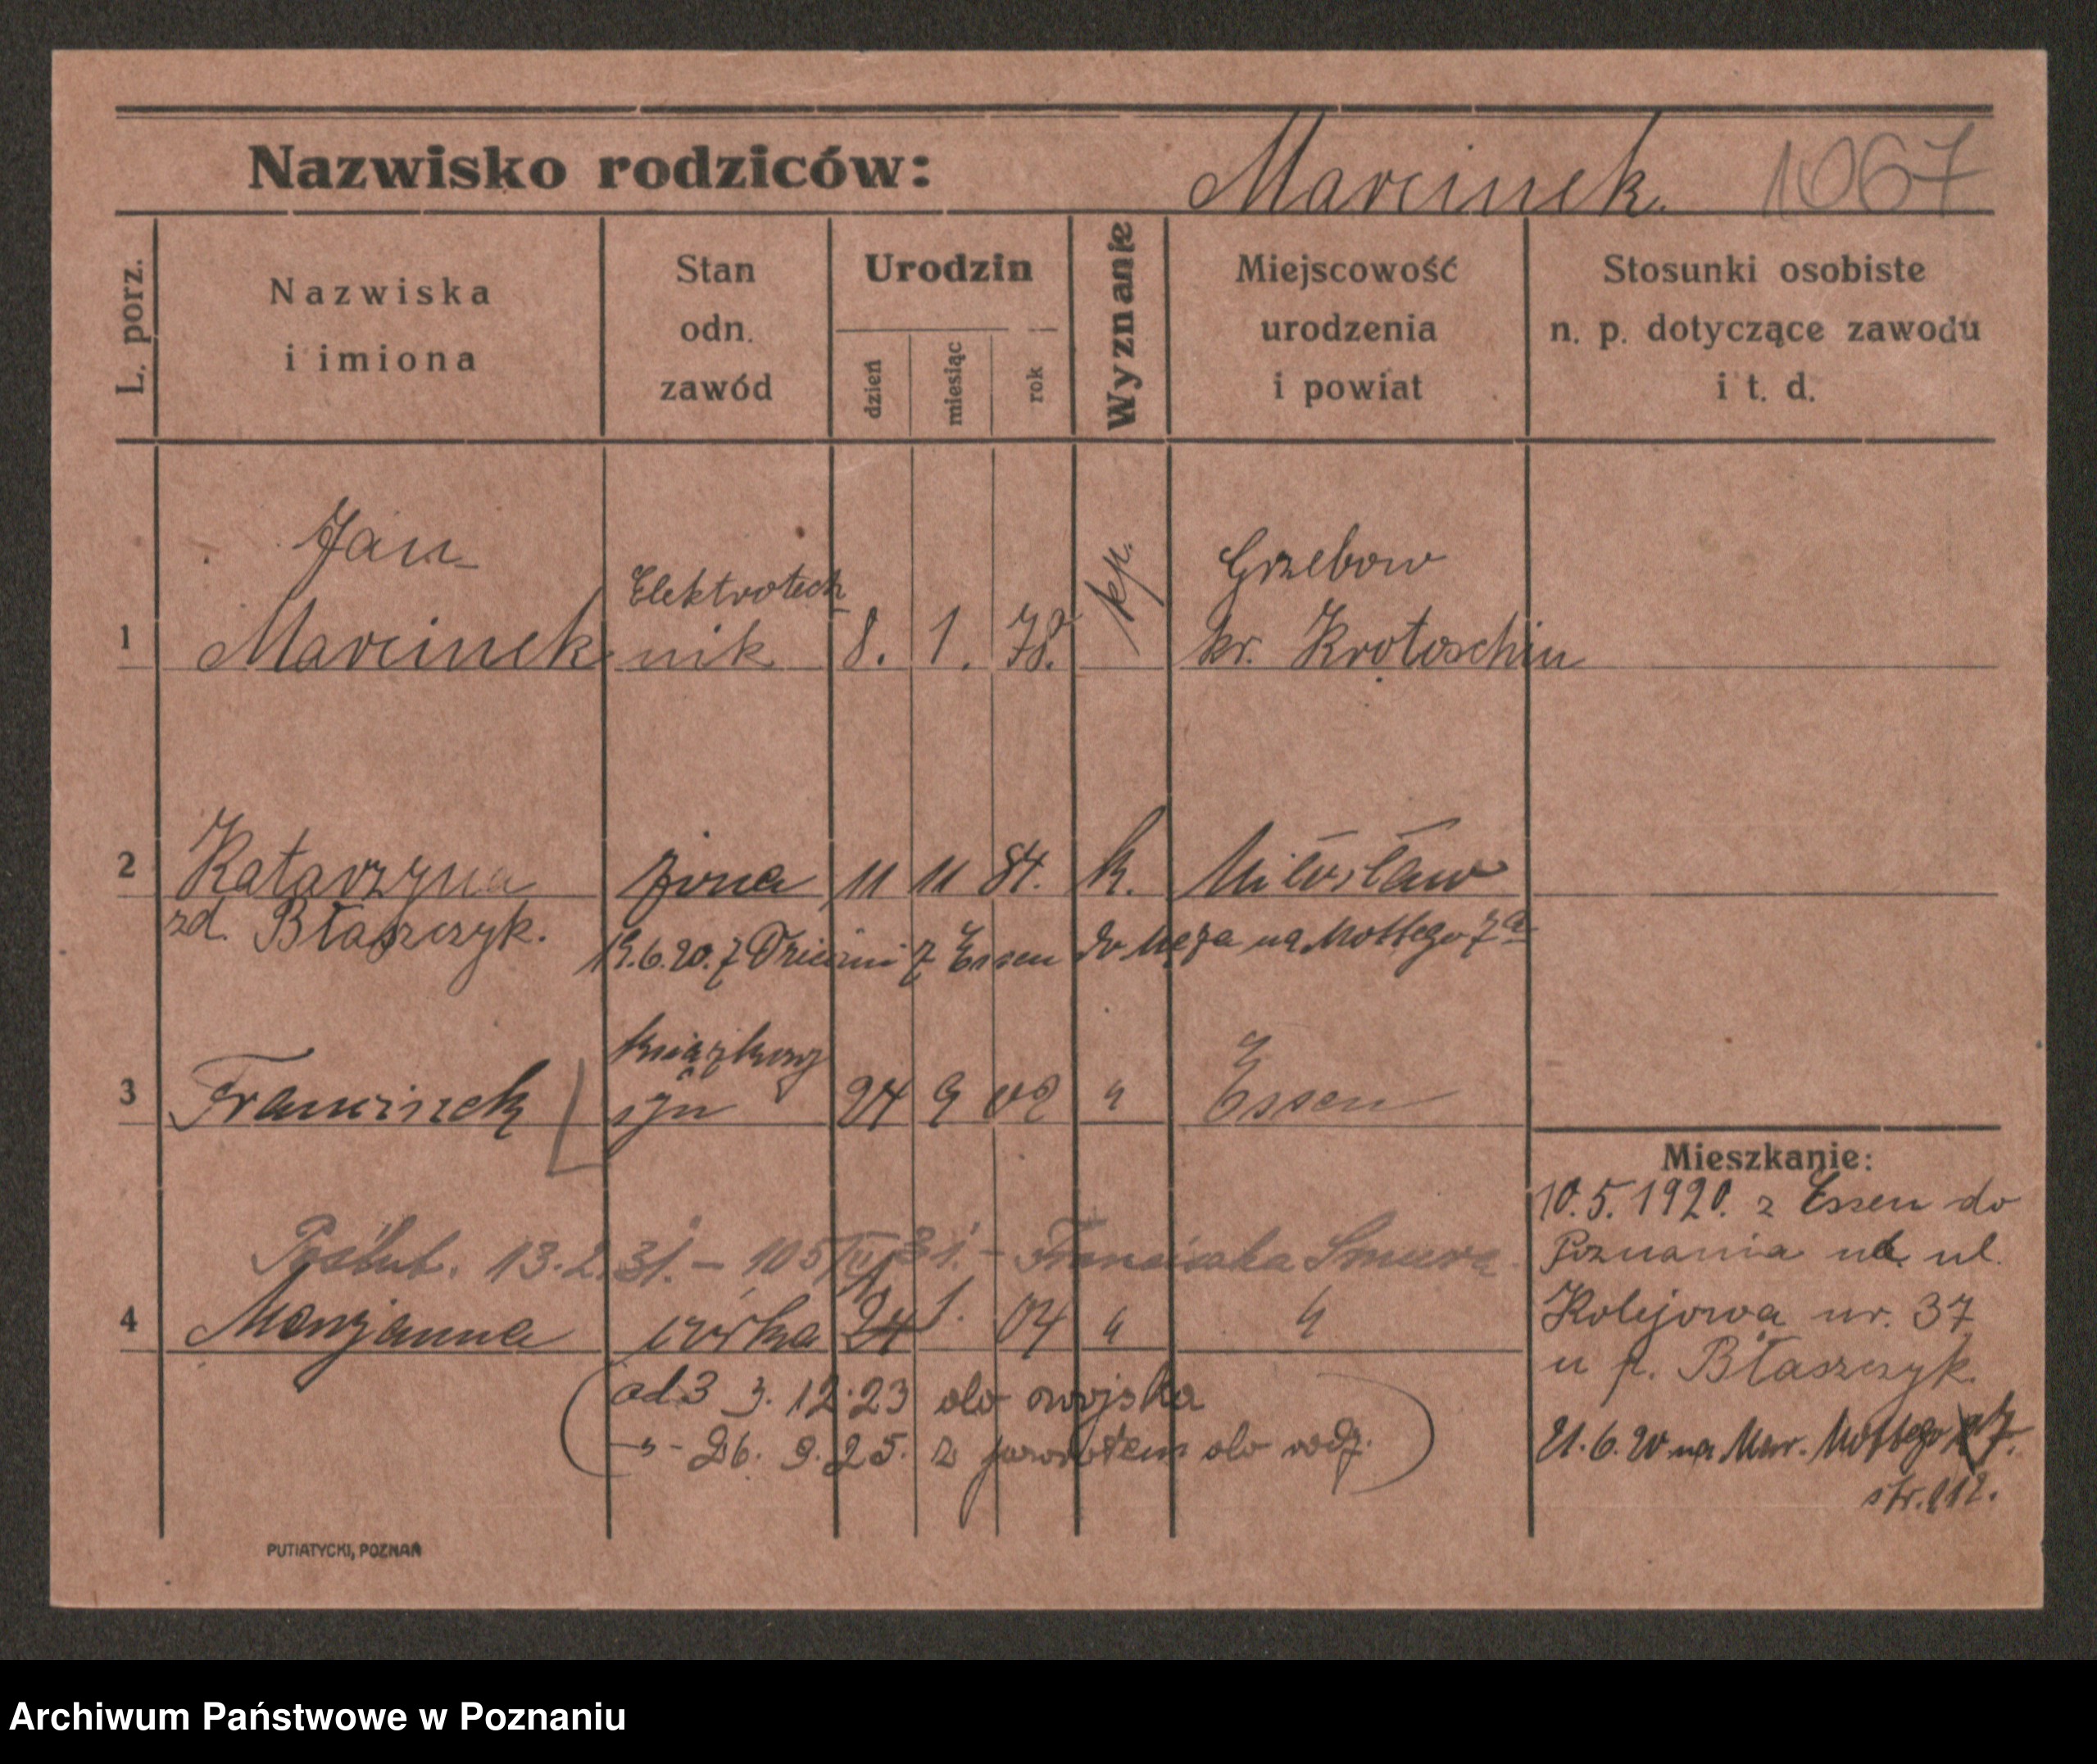 Nazwisko rodziców: Marcinek. 1067
L. porz.
Nazwiska i imiona
Stan odn. zawód
Urodzin
dzień miesiąc rok
Wyznanie
Miejscowość urodzenia i powiat
Stosunki osobiste n. p. dotyczące zawodu i t. d.
Jan Elektrotech Grzebow
1 Marcinek nik 8. 1. 78. kr. Krotoschin
2 Katarzyna żona 11 11 84. k. Miłosław
zd. Błaszczyk.
19.6.20. z Dziećmi z Essen do Męża na Mottego 7a
książkowy
3 Franciszek syn 24 9 02 " Essen
13.2.31. – 105 – Franciszka
4 Maryanna córka 24 1. 04 " "
(od 3 3.12.23 do wojska
-"- 26. 9. 25. z powrotem do rodz.)
Mieszkanie:
10.5.1920. z Essen do
Poznania na ul.
Kolejowa nr. 37
u p. Błaszczyk.
21.6.20 na Mar. Mottego 7.
str. 112.
PUTIATYCKI, POZNAŃ
Archiwum Państwowe w Poznaniu